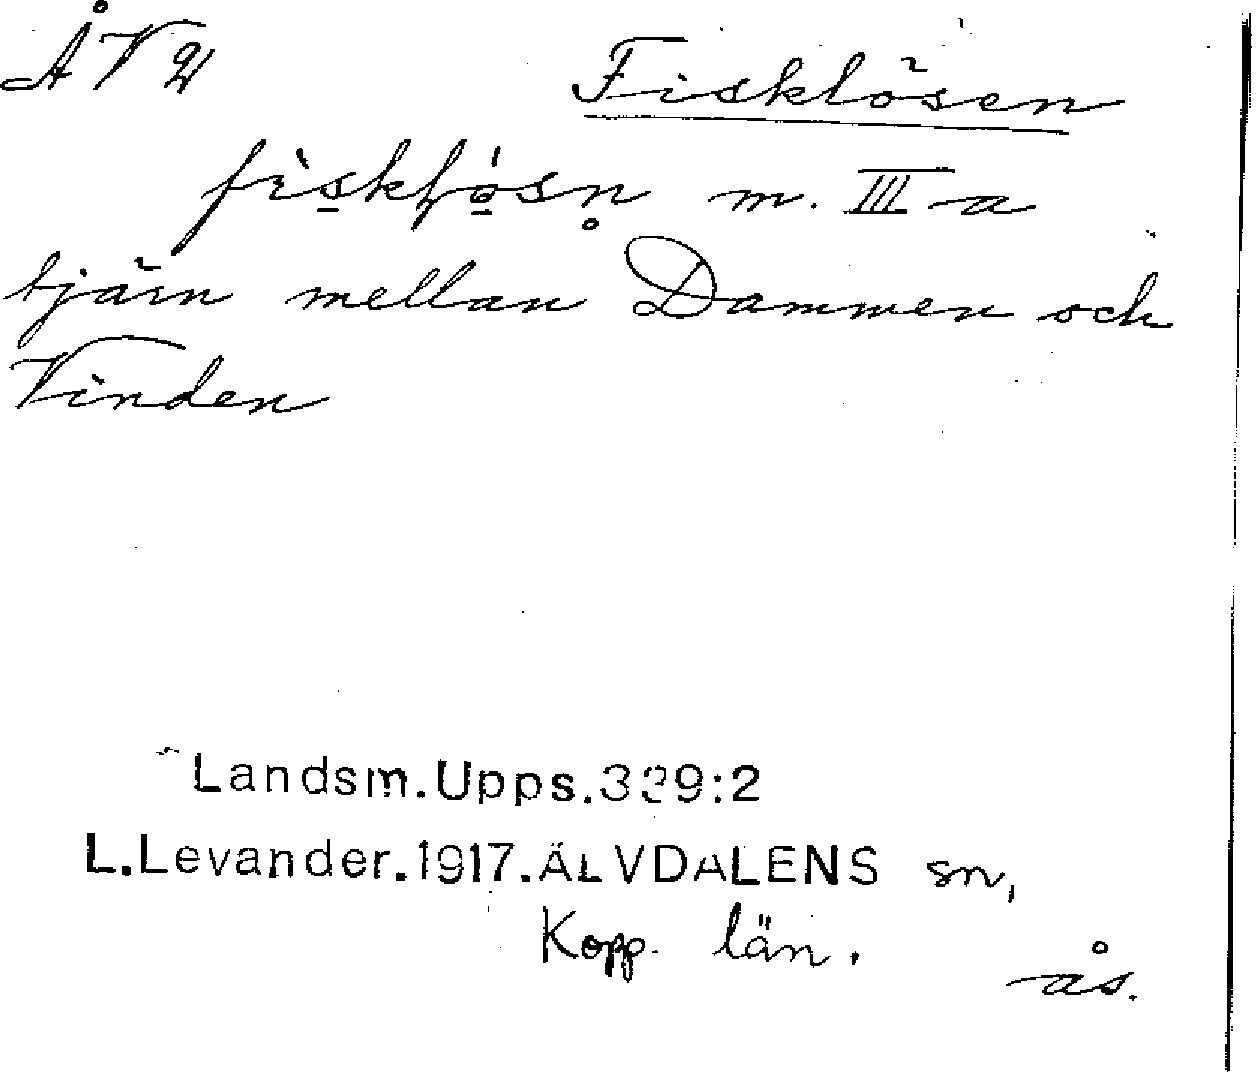 Fisklösen
m. III a
tjärn mellan Dammen och
Vinden
Landsm.Upps.339:2
L.Levander.1917.ÄLVDALENS sn,
Kopp. län.
ås.